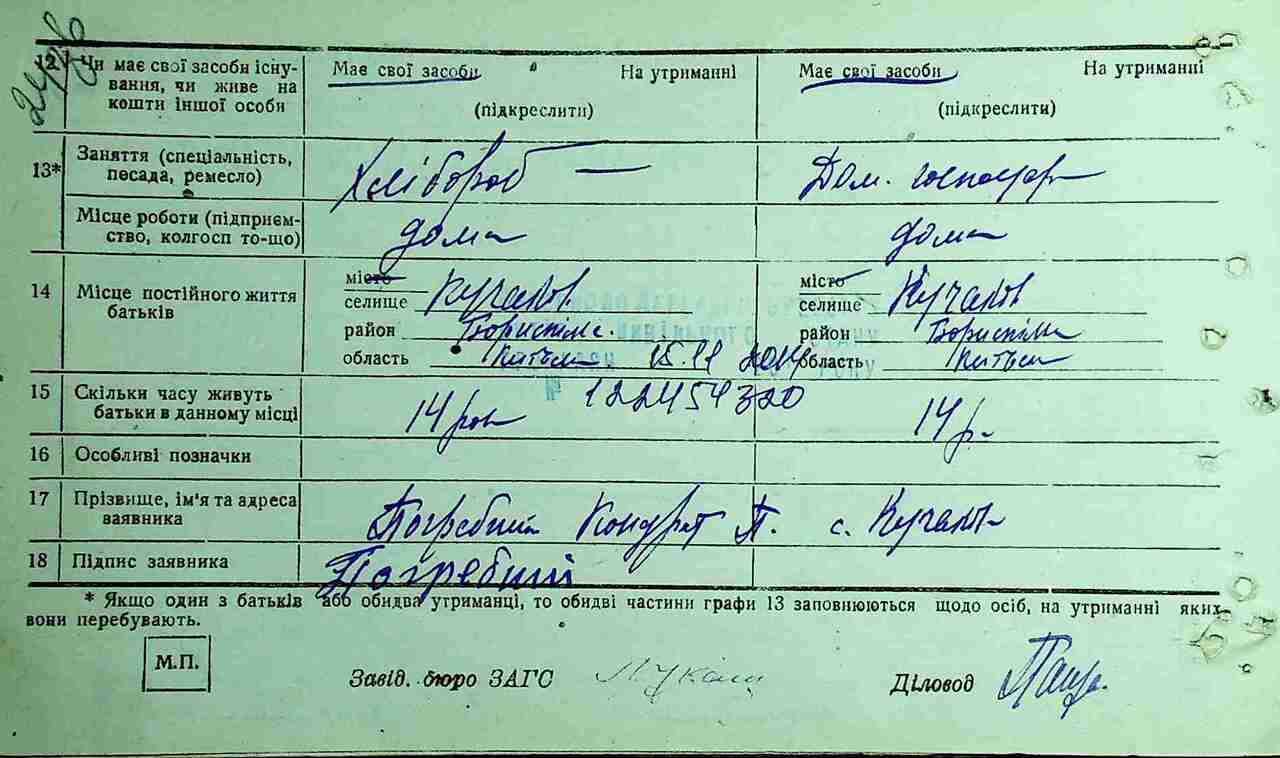 12 Чи має свої засоби існу- Має свої засоби На утриманні Має свої засоби На утриманні
вання, чи живе на
кошти іншої особи (підкреслити) (підкреслити)
13* Заняття (спеціальність, Хлібороб — Дом. господар
посада, ремесло)
Місце роботи (підприєм- дома дома
ство, колгосп то-що)
14 Місце постійного життя місто місто
батьків селище Кучаків селище Кучаків
район Бориспіль район Бориспіль
область 15.11 2014 область
15 Скільки часу живуть 122454320
батьки в данному місці 14 рок 14 р.
16 Особливі позначки
17 Прізвище, ім'я та адреса Погребний Кондрат П. с. Кучаків
заявника
18 Підпис заявника Погребний
* Якщо один з батьків або обидва утриманці, то обидві частини графи 13 заповнюються щодо осіб, на утриманні яких
вони перебувають.
М.П.
Завід. бюро ЗАГС Діловод